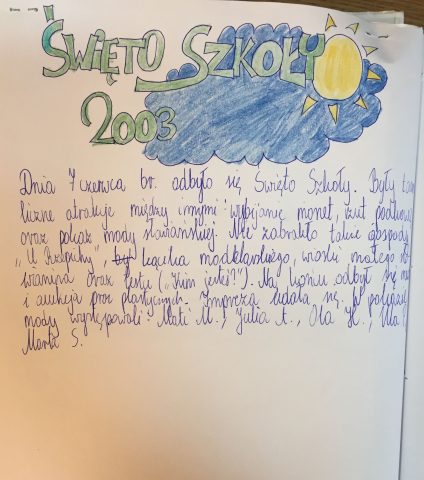 ŚWIĘTO SZKOŁY
2003
Dnia 7 czerwca br. odbyło się Święto Szkoły. Były tam
liczne atrakcje między innymi wybijanie monet, rzut podkową
oraz pokaz mody słowiańskiej. Nie zabrakło także gospody
"U Rzepichy", kącika modelarskiego, wioski małego
oraz testu ("Kim jesteś?"). Na końcu odbył się
i aukcja prac plastycznych. Impreza udała się. W pokazie
mody występowali: Mati M., Julia A., Ola H., Ula
Marta S.